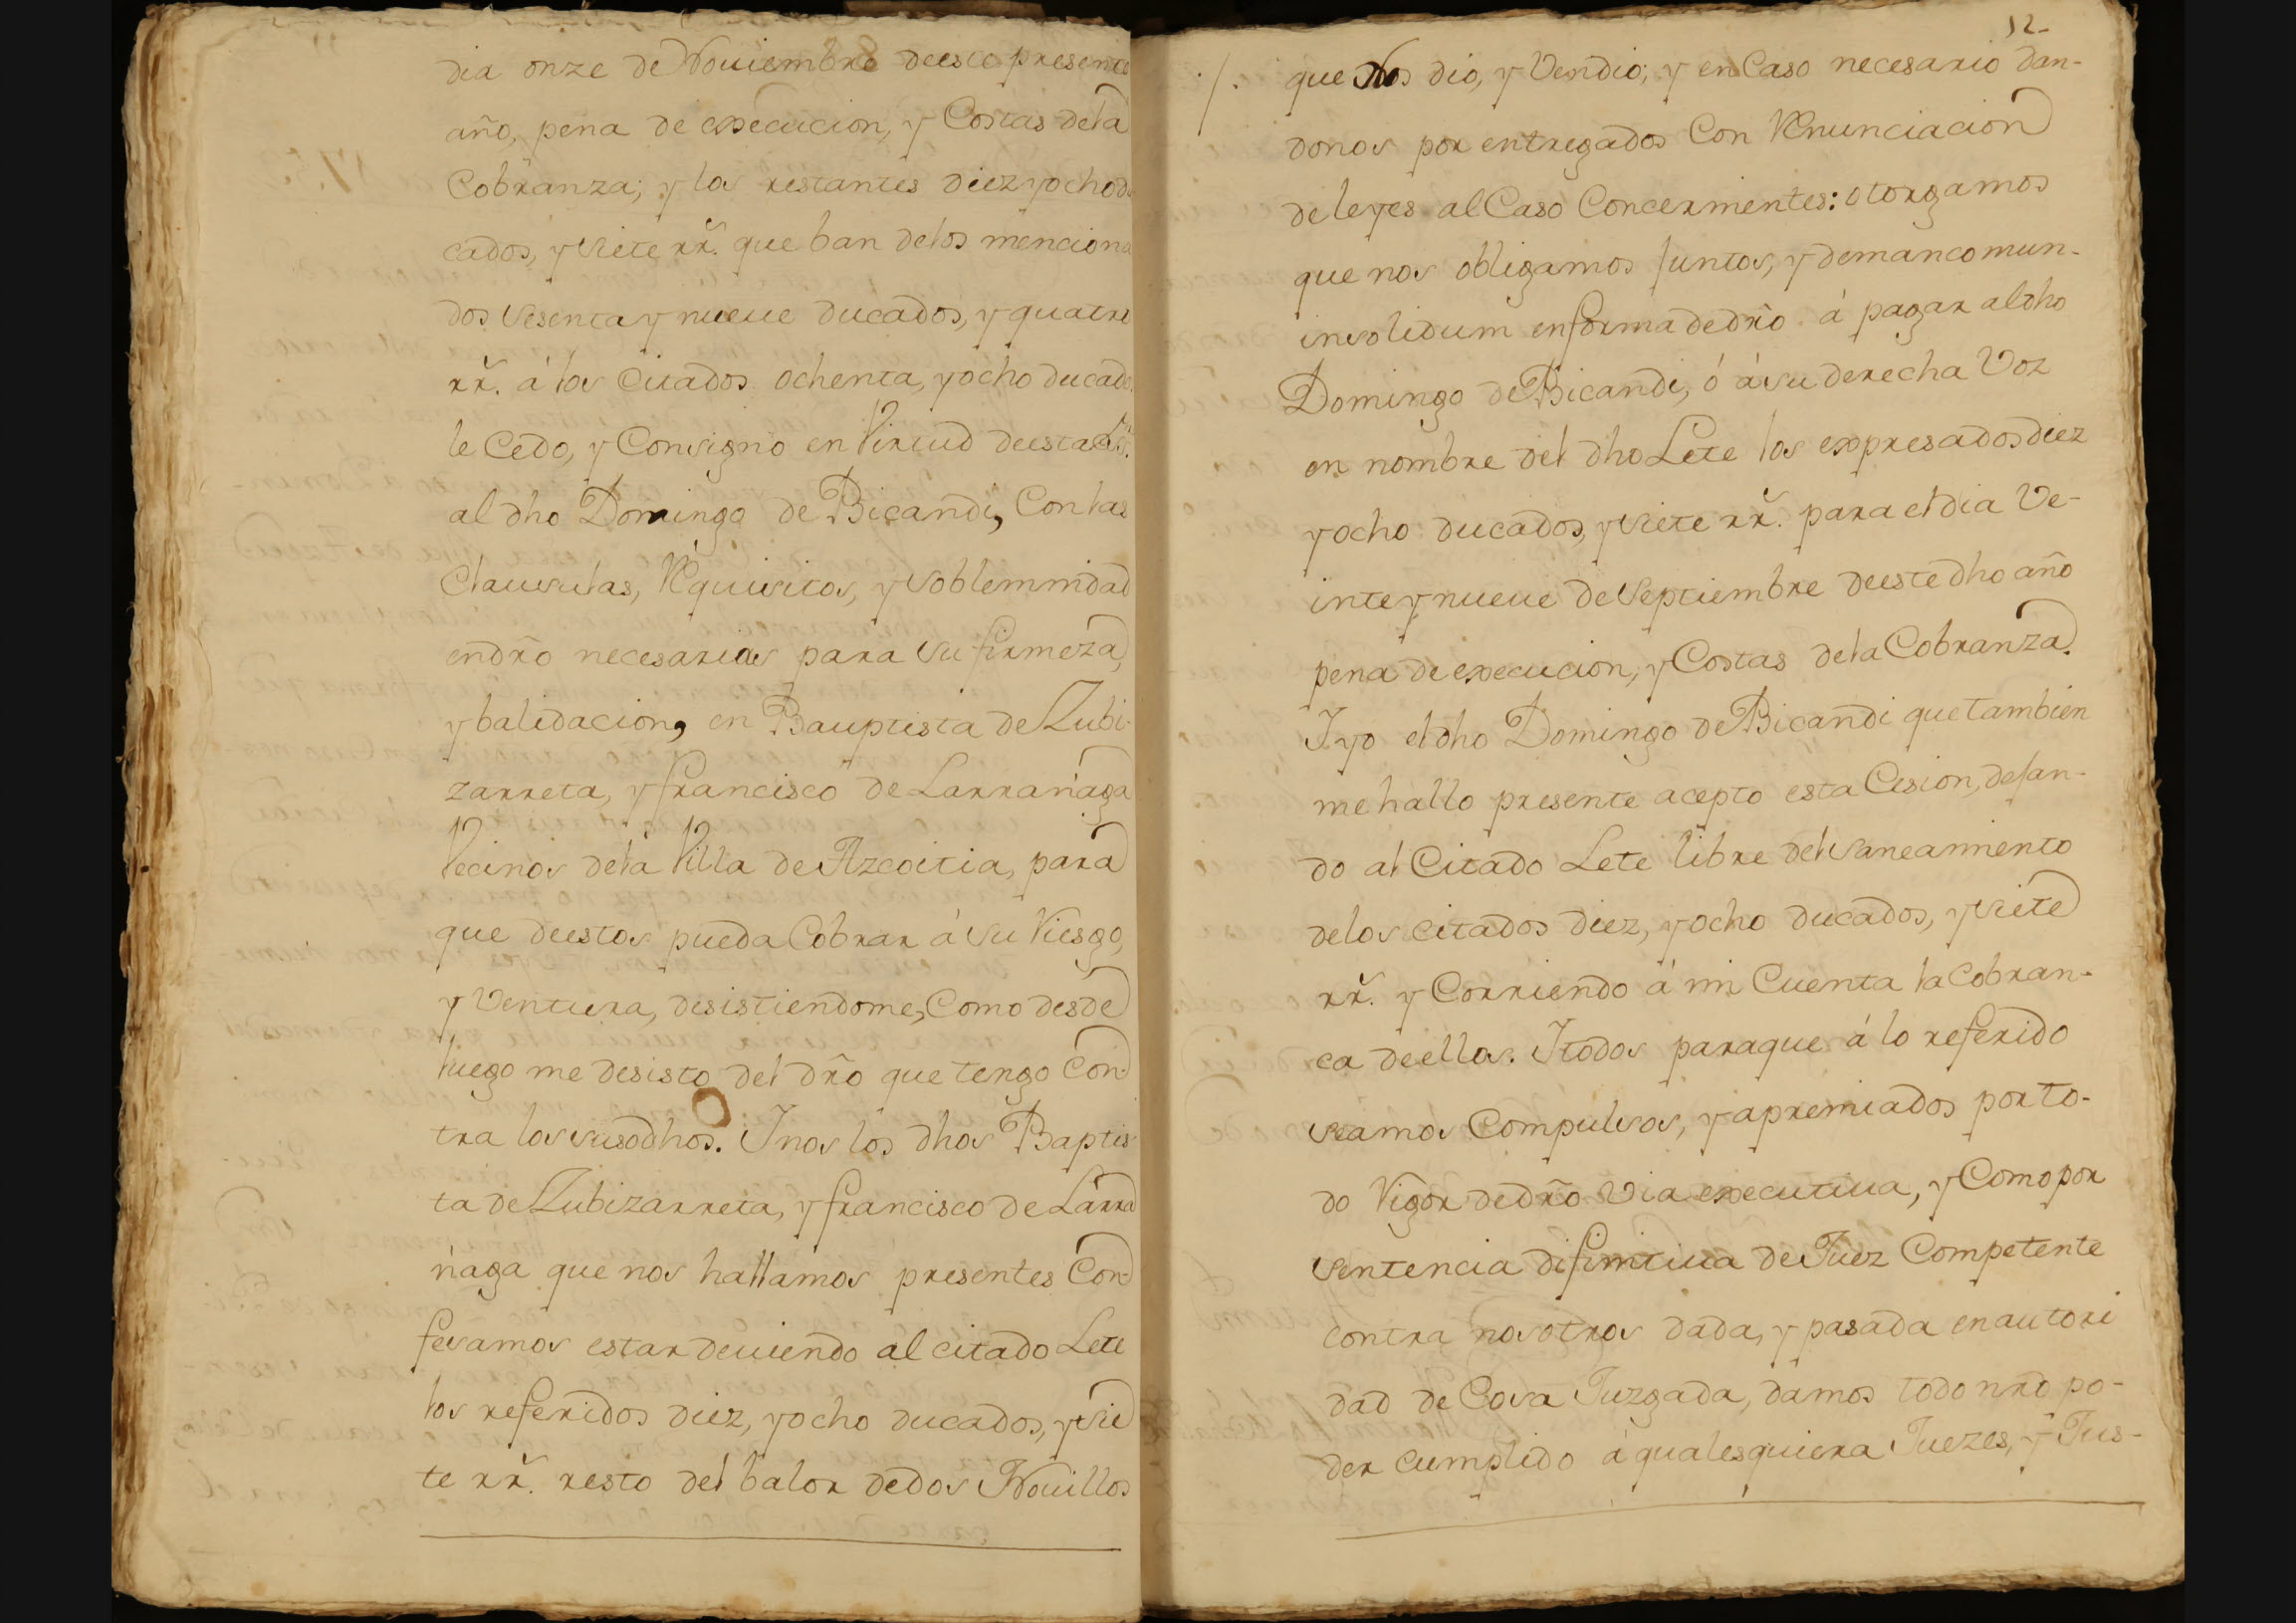 dia onze de Nouiembre deeste presente
año, pena de execucion, y Costas dela
Cobranza; y los restantes diez yocho du
cados, y siete rr̃. que ban delos menciona
dos sesenta y nueue ducados, y quatro
rr̃. á los Citados ochenta, yocho ducados
le Cedo, y Consigno en Virtud deesta
al dho Domingo de Bicandi, Con las
Clausulas, Requisitos, y soblemnidad
endr̃o necesarias para su firmeza,
y balidacion, en Bauptista de Zubi-
zarreta, y francisco de Larrañaga
Vecinos dela Villa de Azcoitia, para
que deestos pueda Cobrar á su Riesgo,
y Ventura, desistiendome, Como desde
luego me desisto del dr̃o que tengo Con-
tra los susodhos. I nos los dhos Baptis
ta de Zubizarreta, y francisco de Larra
ñaga que nos hallamos presentes Con-
fesamos estar deuiendo al citado Lete
los referidos diez, yocho ducados, y sie
te rr̃. resto del balor dedos Nouillos
12-
/. que Nos dio, y Vendio; y en Caso necesario dan-
donos por entregados Con Renunciacion
de leyes al Caso Concernientes: otorgamos
que nos obligamos Juntos, y demancomun-
insolidum enforma dedr̃o á pagar aldho
Domingo de Bicandi, ó ásu derecha Voz
en nombre del dho Lete los expresados diez
yocho ducados, y siete rr̃. para el dia Ve-
inte y nueue de Septiembre deeste dho año
pena de execucion, y Costas dela Cobranza.
I yo el dho Domingo de Bicandi que tambien
me hallo presente acepto esta Cesion, deJan-
do al Citado Lete libre del saneamiento
delos citados diez, yocho ducados, y siete
rr̃. y Corriendo á mi Cuenta la Cobran-
ca deellos. I todos paraque á lo referido
seamos Compulsos, y apremiados por to-
do Vigor dedr̃o Via executiua, y Como por
sentencia difinitiua de Juez Competente
contra nosotros dada, y pasada en autori
dad de Cosa Juzgada, damos todo nr̃o po-
der cumplido á qualesquiera Juezes, y Jus-